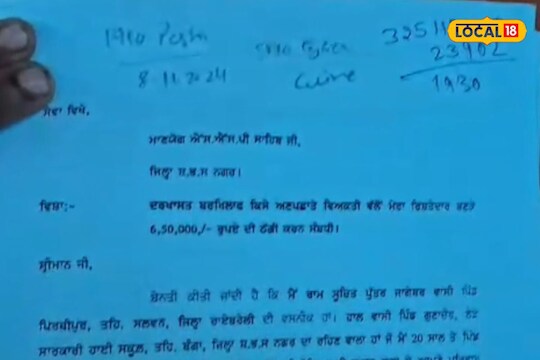 LOCAL 18
1910 Peshi
8.11.2024
SHO Cyber
Crime
23902
1930
ਸੇਵਾ ਵਿਖੇ,
ਮਾਣਯੋਗ ਐੱਸ.ਐੱਸ.ਪੀ ਸਾਹਿਬ ਜੀ,
ਜਿਲ੍ਹਾ ਸ਼.ਭ.ਸ ਨਗਰ।
ਵਿਸ਼ਾ:- ਦਰਖਾਸਤ ਬਰਖਿਲਾਫ ਕਿਸੇ ਅਣਪਛਾਤੇ ਵਿਅਕਤੀ ਵੱਲੋਂ ਮੇਰਾ ਰਿਸ਼ਤੇਦਾਰ ਬਣਕੇ
6,50,000/- ਰੁਪਏ ਦੀ ਠੱਗੀ ਕਰਨ ਸੰਬਧੀ।
ਸ਼੍ਰੀਮਾਨ ਜੀ,
ਬੇਨਤੀ ਕੀਤੀ ਜਾਂਦੀ ਹੈ ਕਿ ਮੈਂ ਰਾਮ ਸੁਚਿਤ ਪੁੱਤਰ ਵਾਸੀ ਪਿੰਡ
ਪਿਰਥੀਪੁਰ, ਤਹਿ. ਸਲਵਨ, ਜਿਲ੍ਹਾ ਰਾਇਬਰੇਲੀ ਦੀ ਵਸਨੀਕ ਹਾਂ। ਹਾਲ ਵਾਸੀ ਪਿੰਡ ਗੁਣਾਚੌਰ, ਨੇੜੇ
ਸਾਰਕਾਰੀ ਹਾਈ ਸਕੂਲ, ਤਹਿ. ਬੰਗਾ, ਜਿਲ੍ਹਾ ਸ਼.ਭ.ਸ ਨਗਰ ਦਾ ਰਹਿਣ ਵਾਲਾ ਹਾਂ ਜੋ ਮੈਂ 20 ਸਾਲ ਤੋਂ ਪਿੰਡ